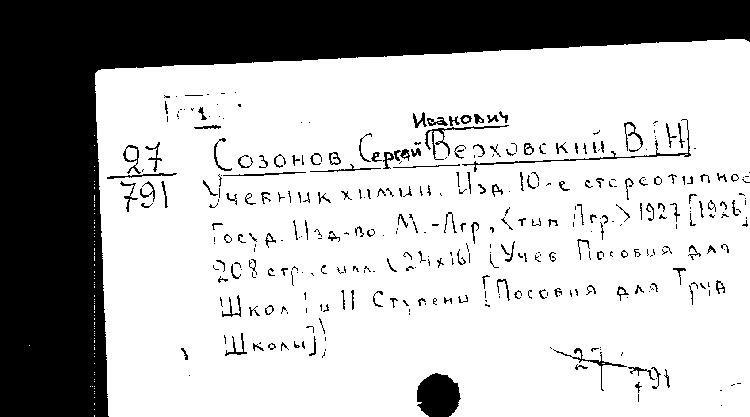 Иванович
27 Созонов, Сергей Верховский, В. [Н].
791 Учебник химии. Изд. 10-е стереотипное
Госуд. Изд-во. М.-Лгр, <тип Лгр.> 1927 [1926]
208 стр., с илл. (24х16) (Учеб Пособия для
Школ I и II Ступени [Пособия для Труд
Школы])
27
791